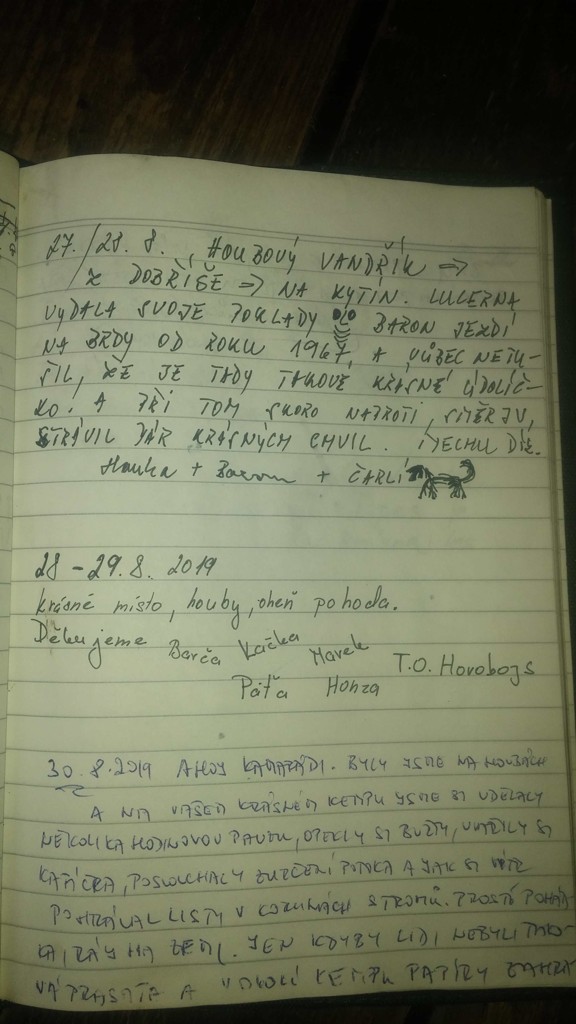 27./28. 8. HOUBOVÝ VANDŘÍK ⇒
Z DOBŘÍŠE ⇒ NA KYTÍN. LUCERNA
VYDALA SVOJE POKLADY BARON JEZDÍ
NA BRDY OD ROKU 1967, A VŮBEC NETU-
ŠIL, ŽE JE TADY TAKOVÉ KRÁSNÉ ÚDOLÍČ-
KO. A PŘI TOM SKORO NAPROTI,
STRÁVIL PÁR KRÁSNÝCH CHVIL. DÍK.
Hanka + Baron + ČARLÍ
28 - 29. 8. 2019
krásné místo, houby, oheň pohoda.
Děkujeme Barča Kačka Marek T.O. Horobojs
Páťa Honza
30. 8. 2019 AHOJ KAMARÁDI. BYLY JSME NA HOUBÁCH
A NA VAŠEM KRÁSNÉM KEMPU JSME SI UDĚLALY
NĚKOLIKA HODINOVOU PAUZU, OPEKLY SI BUŘTY, UVAŘILY SI
KAFÍČKA, POSLOUCHALY ZURČENÍ POTOKA A JAK SI VÍTR
POHRÁVAL LISTY V KORUNÁCH STROMŮ. PROSTĚ POHÁD-
KA, RÁJ NA ZEMI. JEN KDYBY LIDI NEBYLI TAKO-
VÁ PRASATA A V OKOLÍ KEMPU PAPÍRY